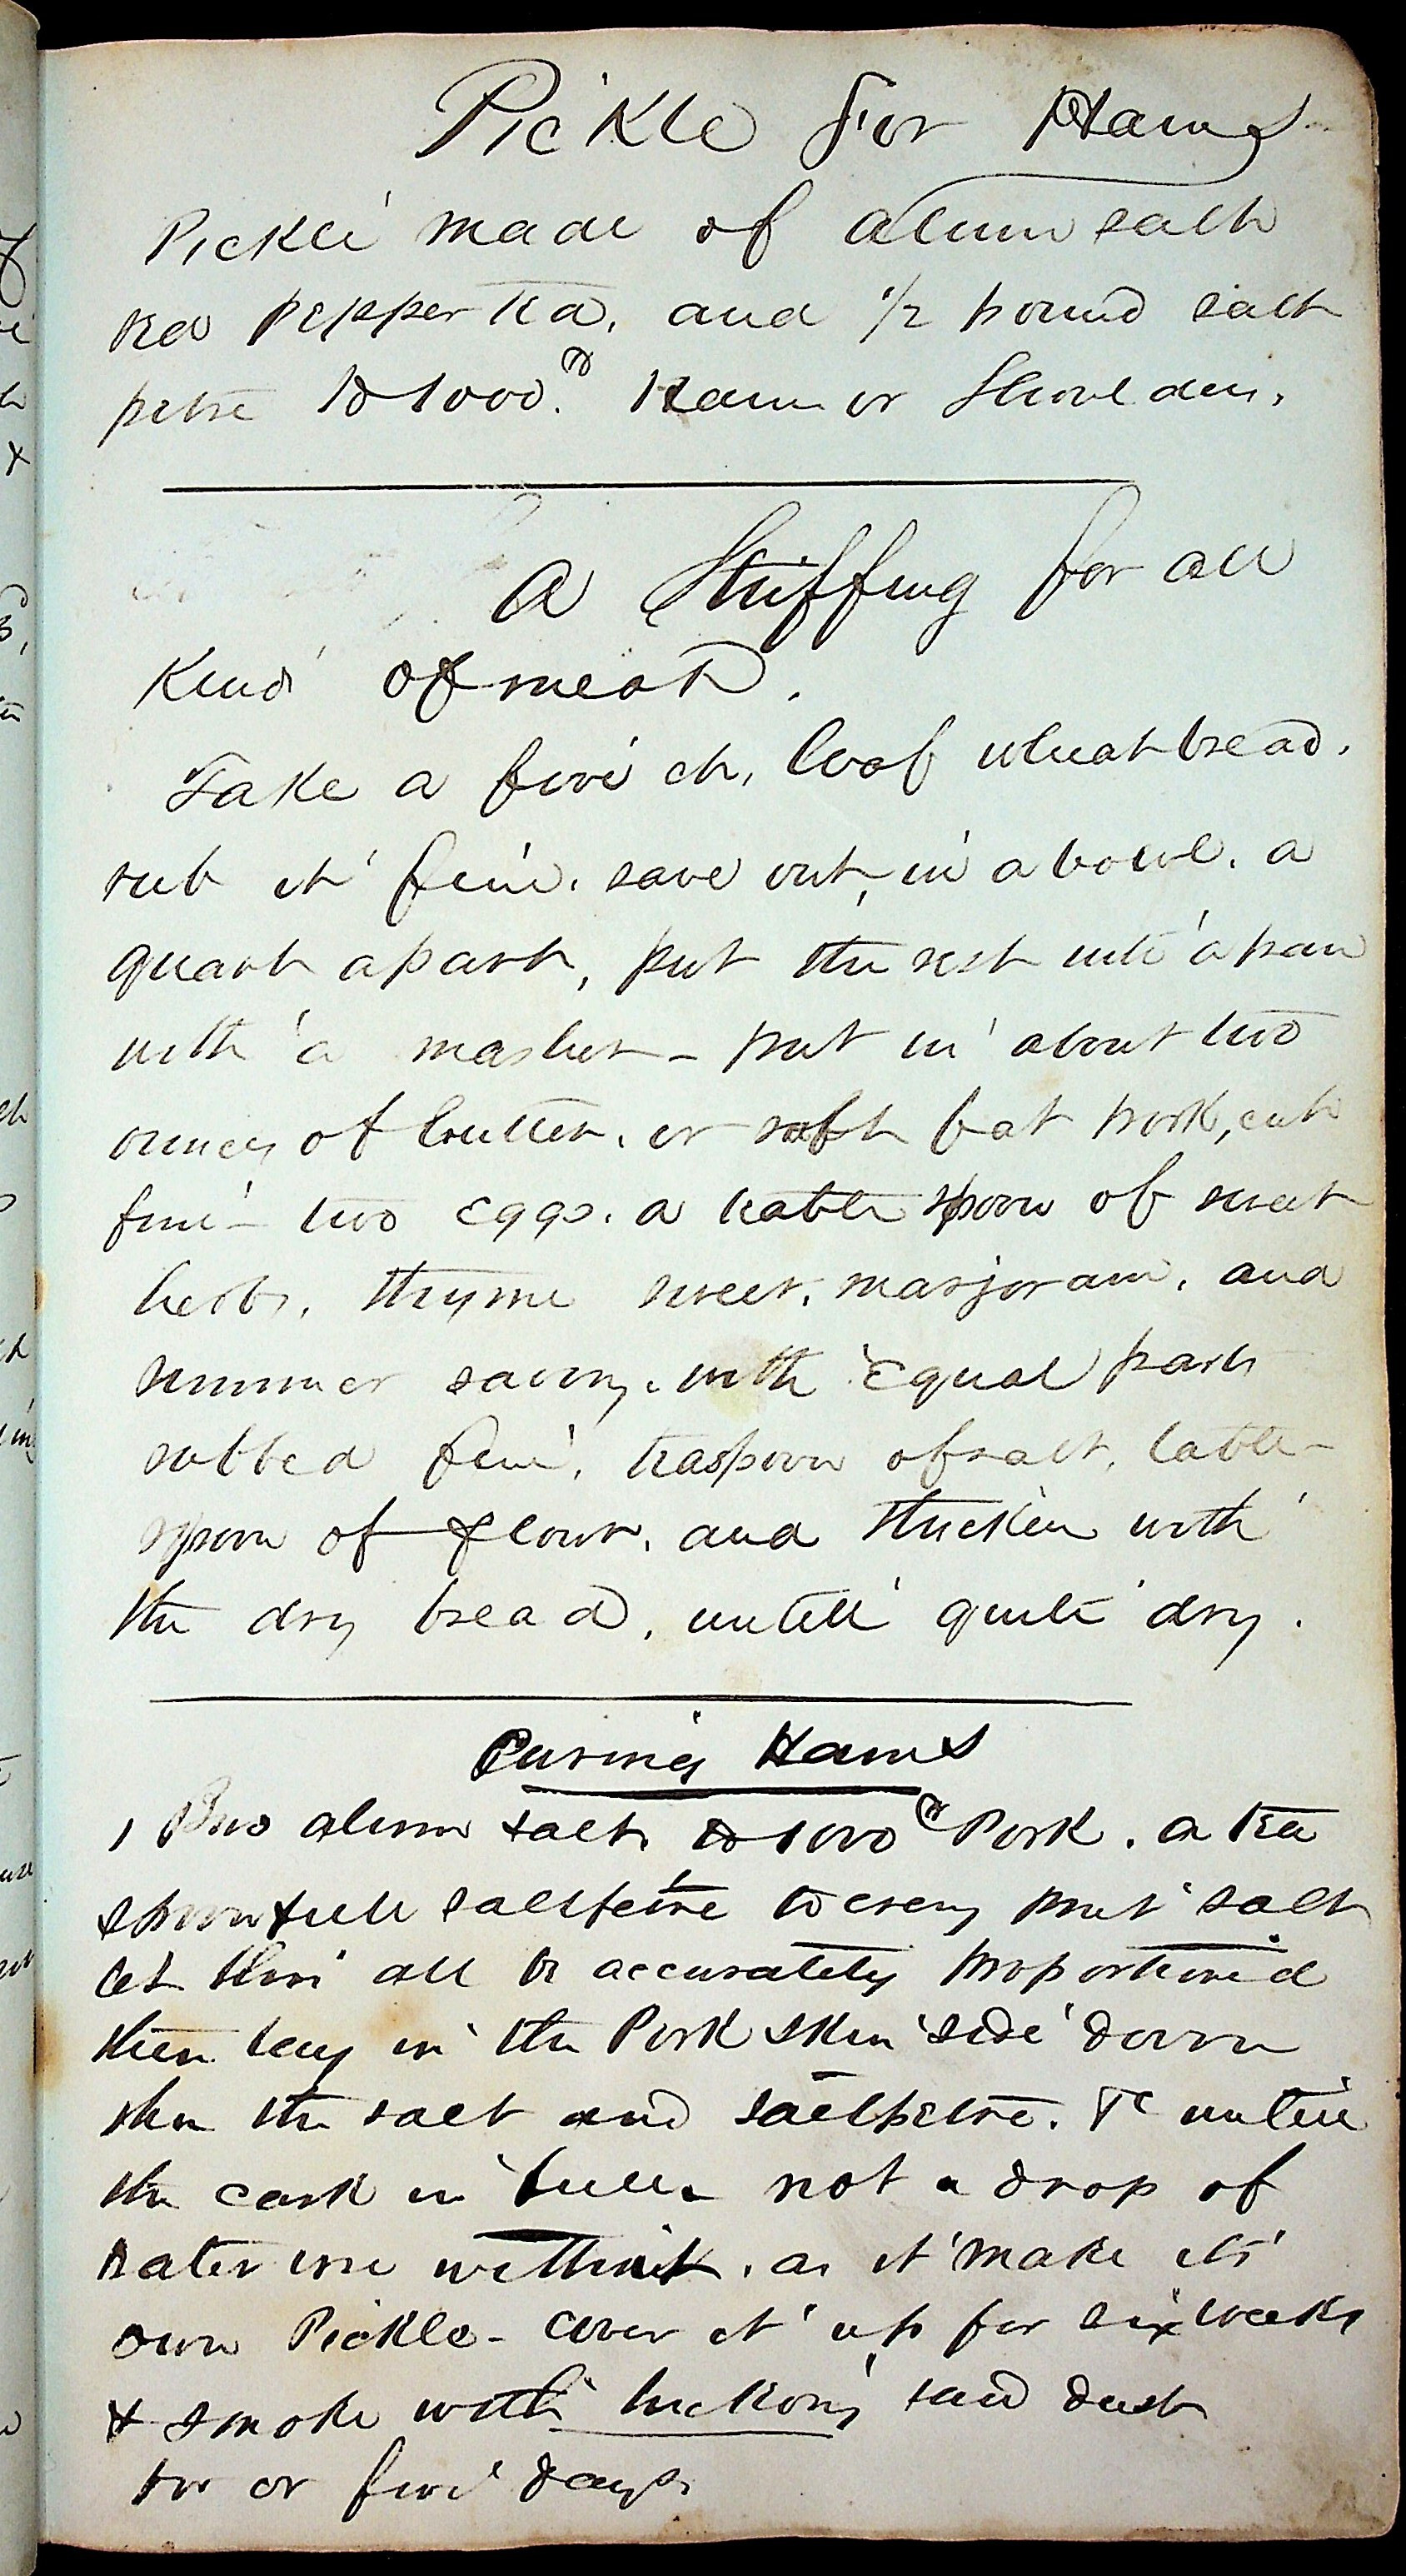 Pickle for Hams
Pickle made of alum salt
red pepper tea, and 1/2 pound salt
petre to 1000. Ham or Shoulders.
A Stuffing for all
Kinds of meat.
Take a five ct, loaf wheat bread.
rub it fine. save out, in a bowl. a
quart apart, put the rest into a pan
with a masher - put in about two
ounces of butter. or soft fat pork, cut
fine - two eggs. a table spoon of sweet
herbs. thyme sweet. marjoram. and
summer savory. with equal parts
rubbed fine, teaspoon of salt, table-
spoon of flour. and thicken with
the dry bread, untill quite dry.
Curing Hams
1 Bus alum salt to 1000 Pork. a tea
spoonfull saltpetre to every pint salt
let this all be accurately proportioned
then lay in the Pork skin side down
then the salt and saltpetre. &c untill
the cask is full - not a drop of
water use without. as it make its
own Pickle - cover it up for six weeks
& smoke with hickory saw dust
for or five days